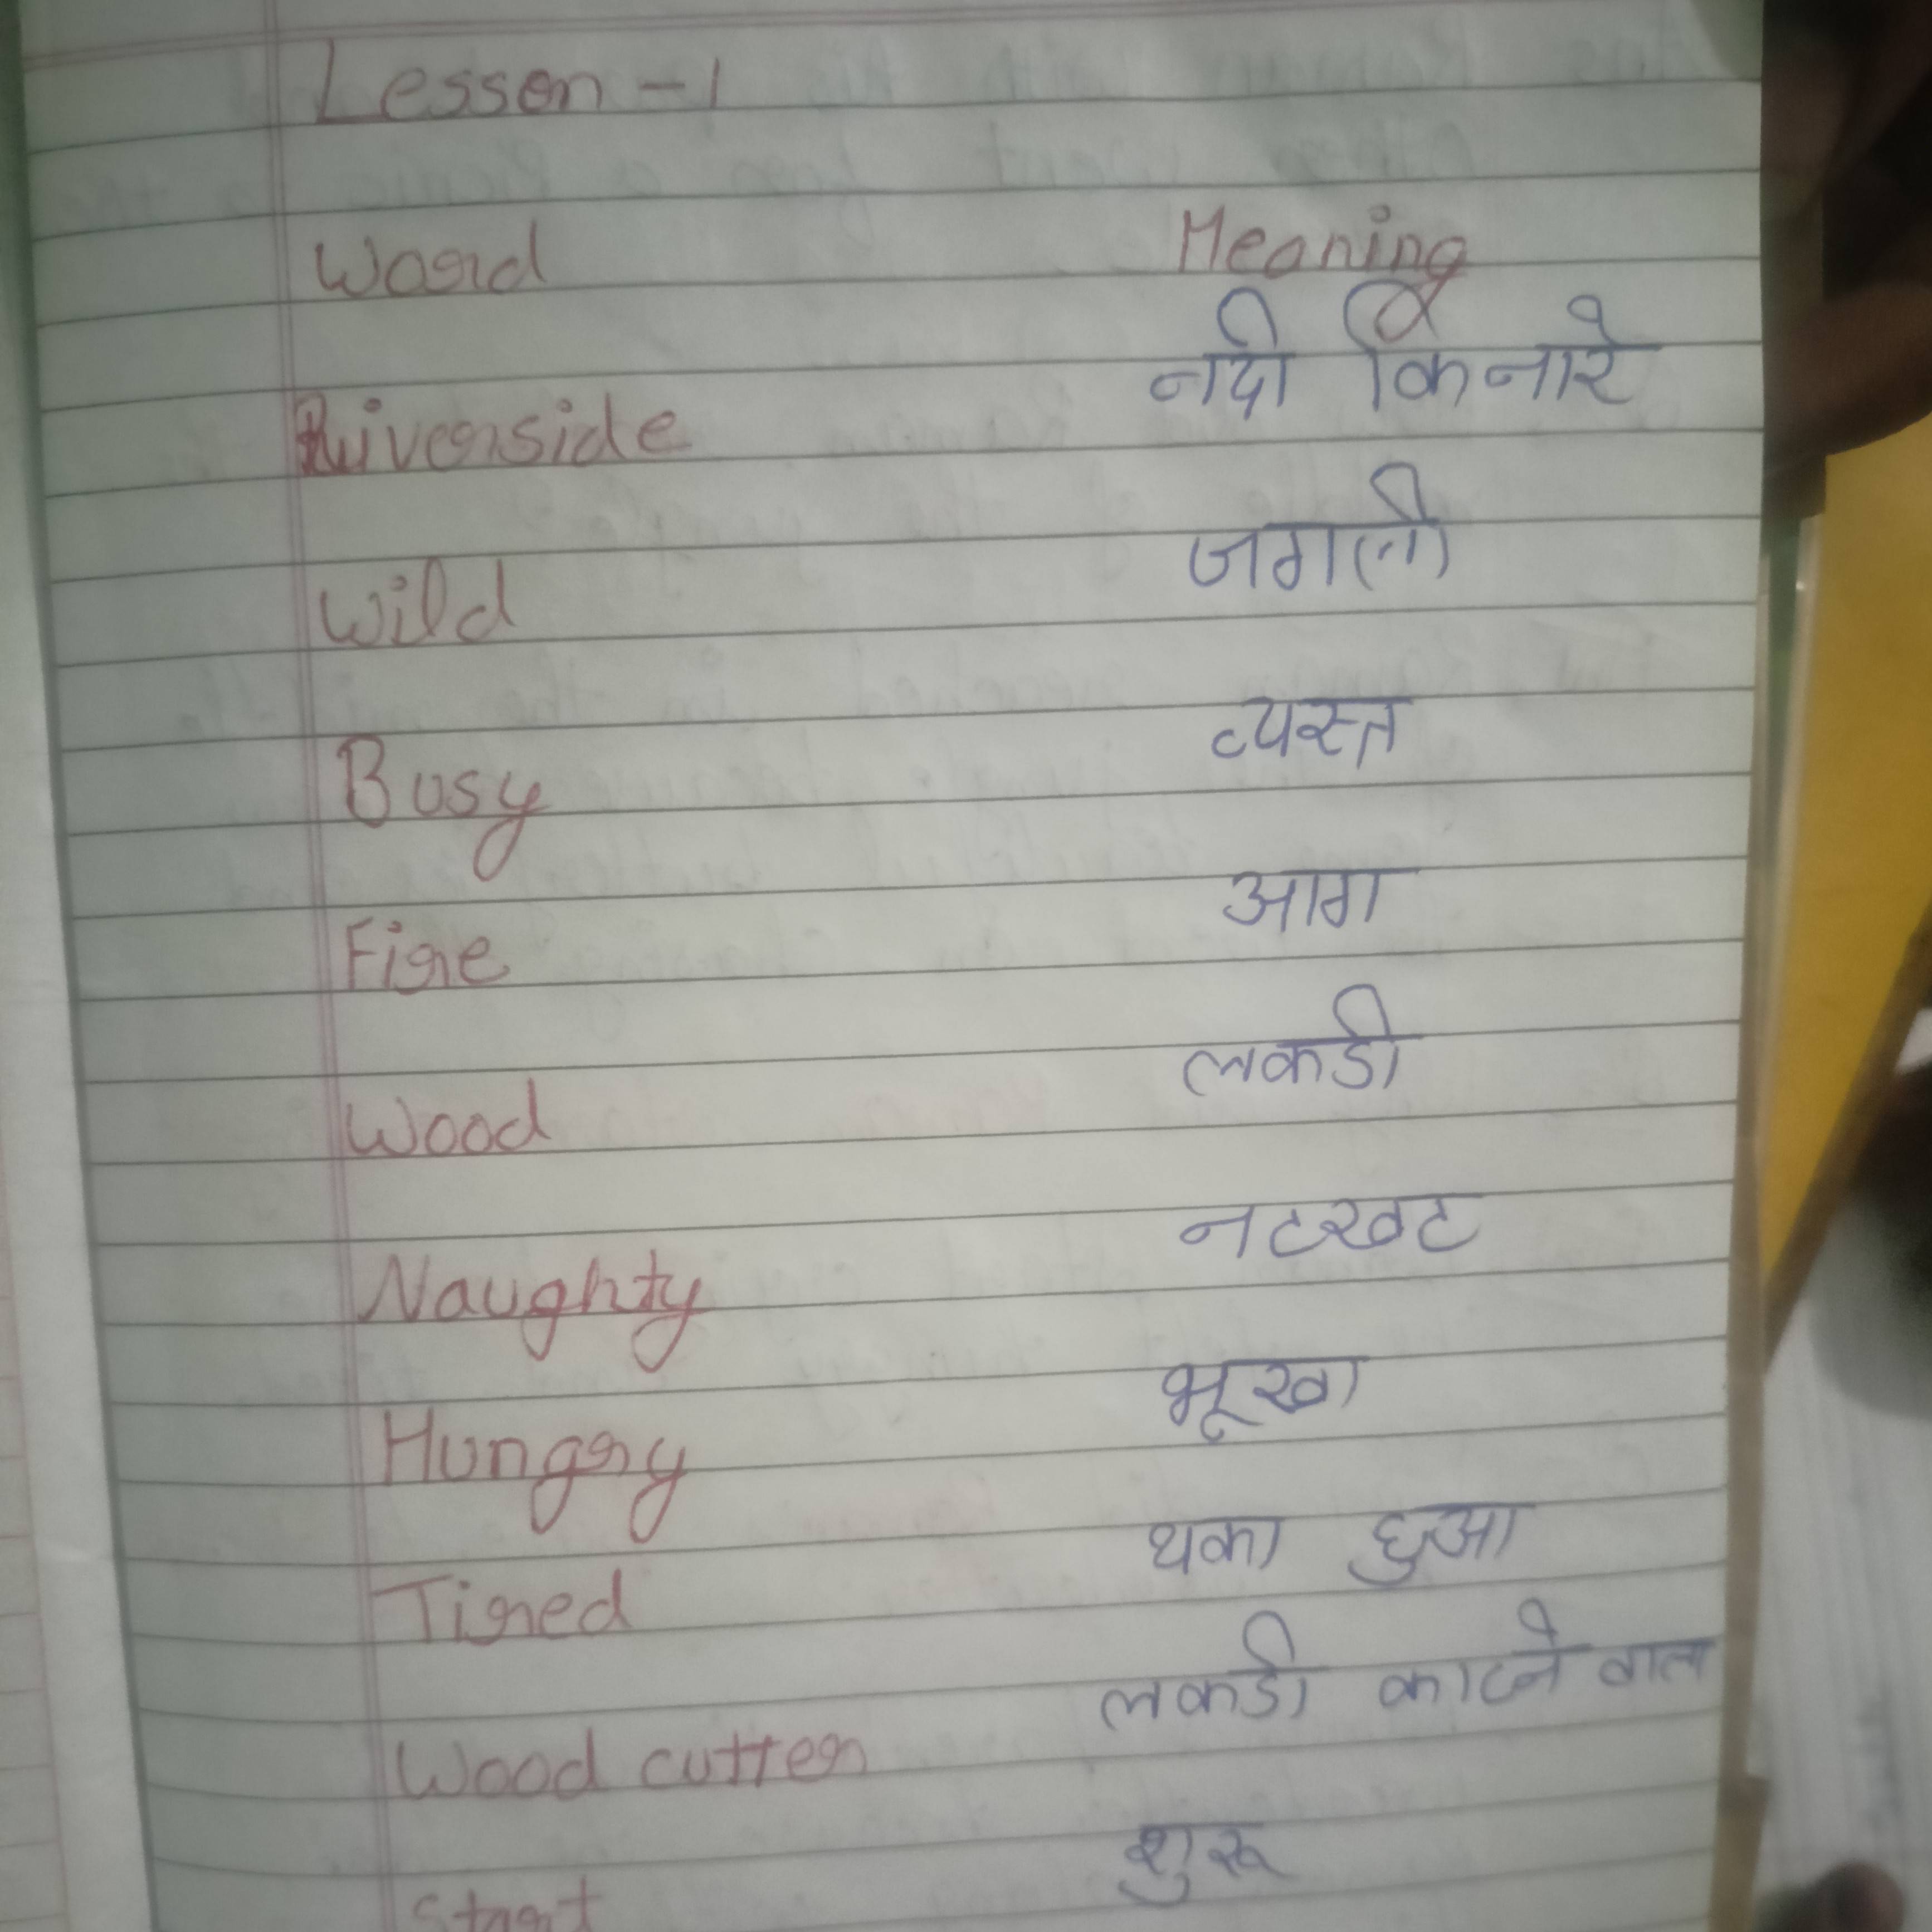 Lesson - 1
Word Meaning
Riverside नदी किनारे
Wild जगली
Busy व्यस्त
Fire आग
Wood लकडी
Naughty नटखट
Hungry भूखा
Tired थका हुआ
Wood cutter लकडी काटने वाला
Start शुरू